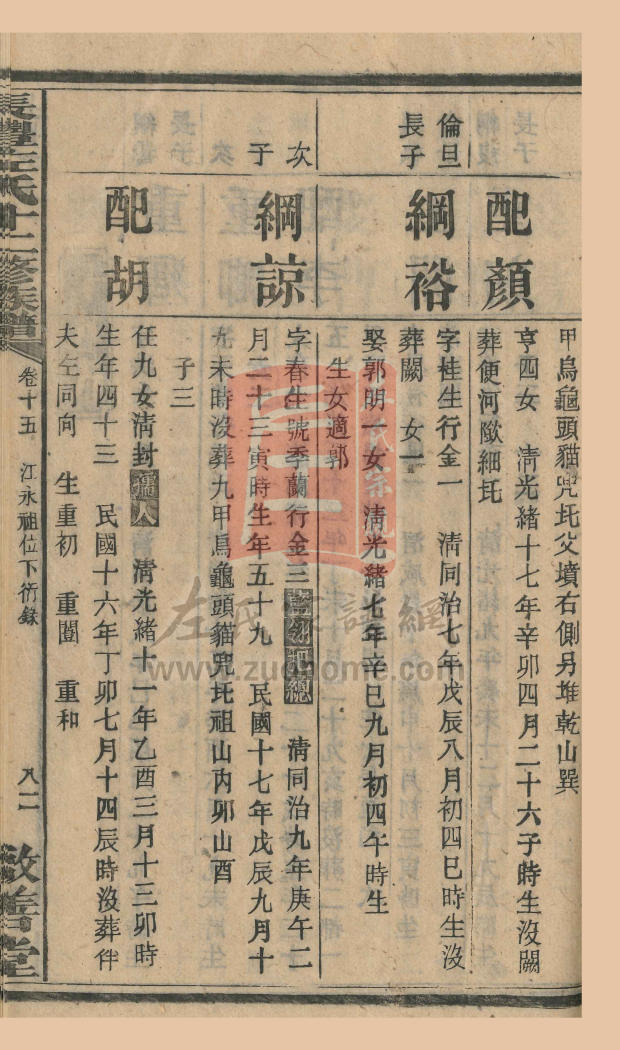 甲烏龜頭貓兕圫父墳右側另堆乾山巽
配顏
亨四女 清光緒十七年辛卯四月二十六子時生沒闕
葬便河歐細圫
倫旦
長子
綱裕
字桂生行金一 清同治七年戊辰八月初四巳時生沒
葬闕 女一
娶郭明一女 清光緒七年辛巳九月初四午時生
生女適郭
次
子
綱諒
字春生號季蘭行金三藍翎把總 清同治九年庚午二
月二十三寅時生年五十九 民國十七年戊辰九月十
九未時沒葬九甲烏龜頭貓兕圫祖山內卯山酉
子三
配胡
任九女清封孺人 清光緒十一年乙酉三月十三卯時
生年四十三 民國十六年丁卯七月十四辰時沒葬伴
夫左同向 生重初 重闓 重和
長豐左氏十二修族譜
卷十五 江永祖位下衍錄
八二
敦善堂
左氏家譜網
www.zuohome.com